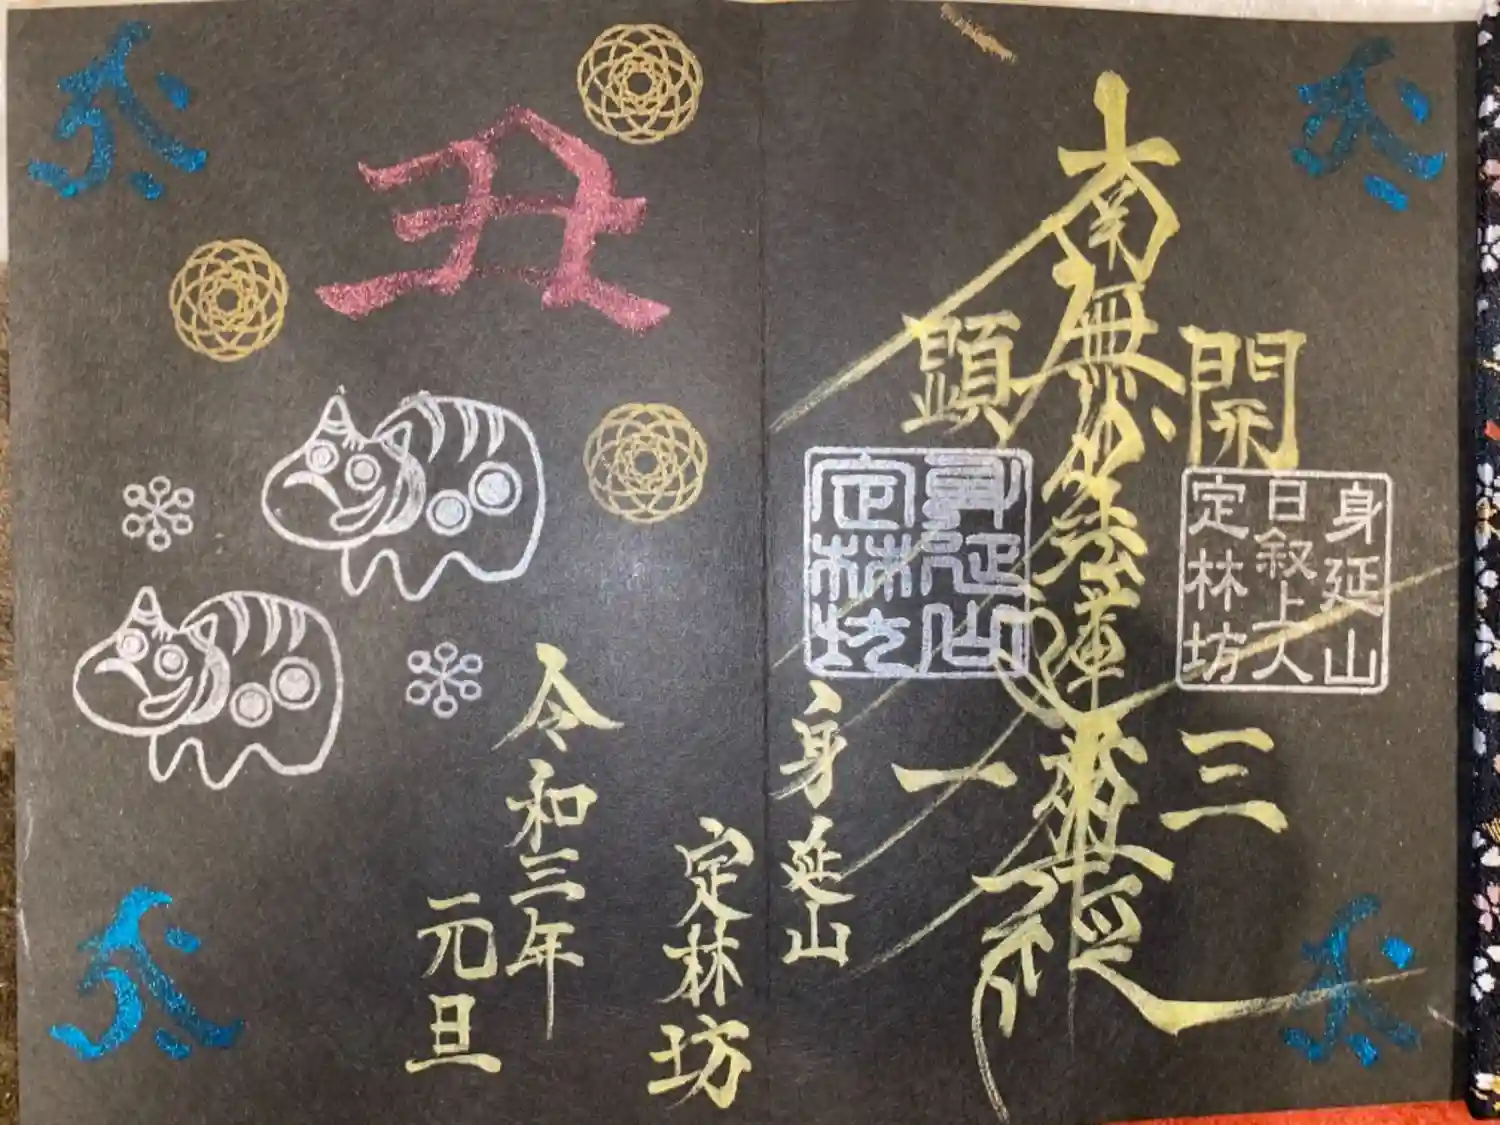 開三
身延山
日叙上人
定林坊
南無妙法蓮華経
顕一
身延山
定林坊
身延山
定林坊
丑
令和三年
元旦